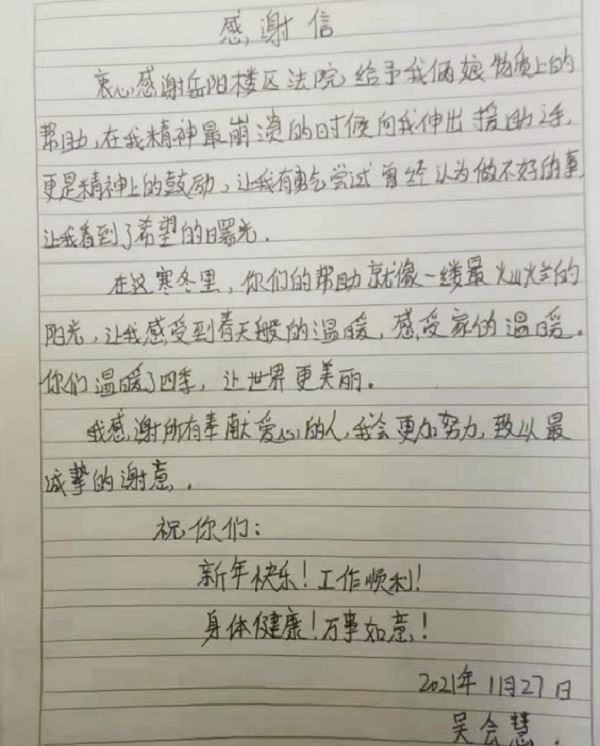 感谢信
衷心感谢岳阳楼区法院给予我俩娘物质上的
帮助,在我精神最崩溃的时候向我伸出援助之手,
更是精神上的鼓励,让我有勇气尝试曾经认为做不好的事,
让我看到了希望的曙光.
在这寒冬里,你们的帮助就像一缕最灿烂的
阳光,让我感受到春天般的温暖,感受家的温暖。
你们温暖了四季,让世界更美丽。
我感谢所有奉献爱心的人,我会更加努力,致以最
诚挚的谢意.
祝你们:
新年快乐!工作顺利!
身体健康!万事如意!
2021年11月27日
吴会慧.